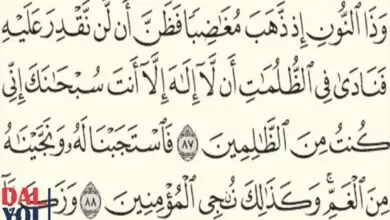 وَذَا ٱلنُّونِ إِذ ذَّهَبَ مُغَٰضِبًا فَظَنَّ أَن لَّن نَّقۡدِرَ عَلَيۡهِ
فَنَادَىٰ فِي ٱلظُّلُمَٰتِ أَن لَّآ إِلَٰهَ إِلَّآ أَنتَ سُبۡحَٰنَكَ إِنِّي
كُنتُ مِنَ ٱلظَّٰلِمِينَ ٨٧ فَٱسۡتَجَبۡنَا لَهُۥ وَنَجَّيۡنَٰهُ
مِنَ ٱلۡغَمِّۚ وَكَذَٰلِكَ نُـۨجِي ٱلۡمُؤۡمِنِينَ ٨٨
DAL
YOL